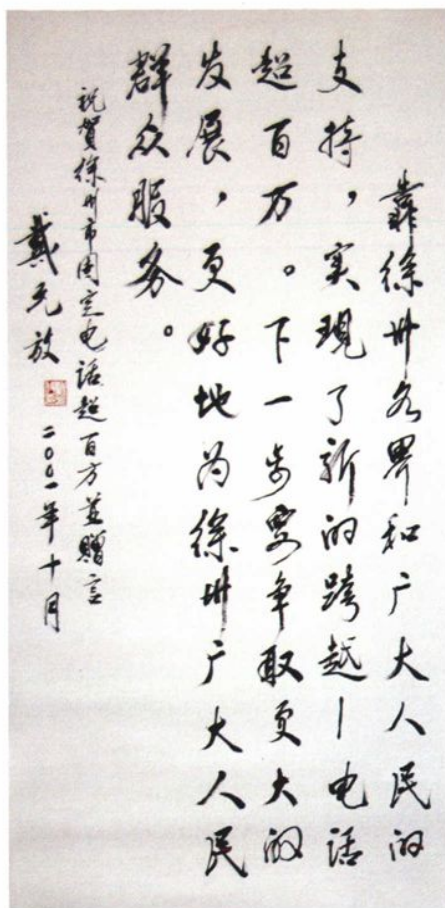 靠徐州各界和广大人民的
支持，实现了新的跨越—电话
超百万。下一步要争取更大的
发展，更好地为徐州广大人民
群众服务。
祝贺徐州市固定电话超百万并赠言
戴元放 二〇〇一年十月